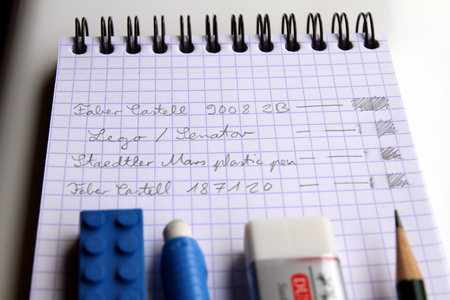 Faber Castell 9008 2B
Lego / Senator
Staedtler Mars plastic pen
Faber Castell 187120